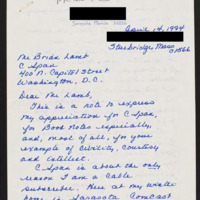 Sarasota, Florida
April 14, 1994
Sturbridge Mass
01566
Mr Brian Lamb
C Span
400 N. Capitol Street
Washington, D.C.
Dear Mr Lamb,
This is a note to express
my appreciation for C Span,
for Book Notes especially
and, most of all, for your
example of civility, courtesy
and intellect.
C Span is about the only
reason I am a cable
subscriber. Here at my winter
home in Sarasota Comcast